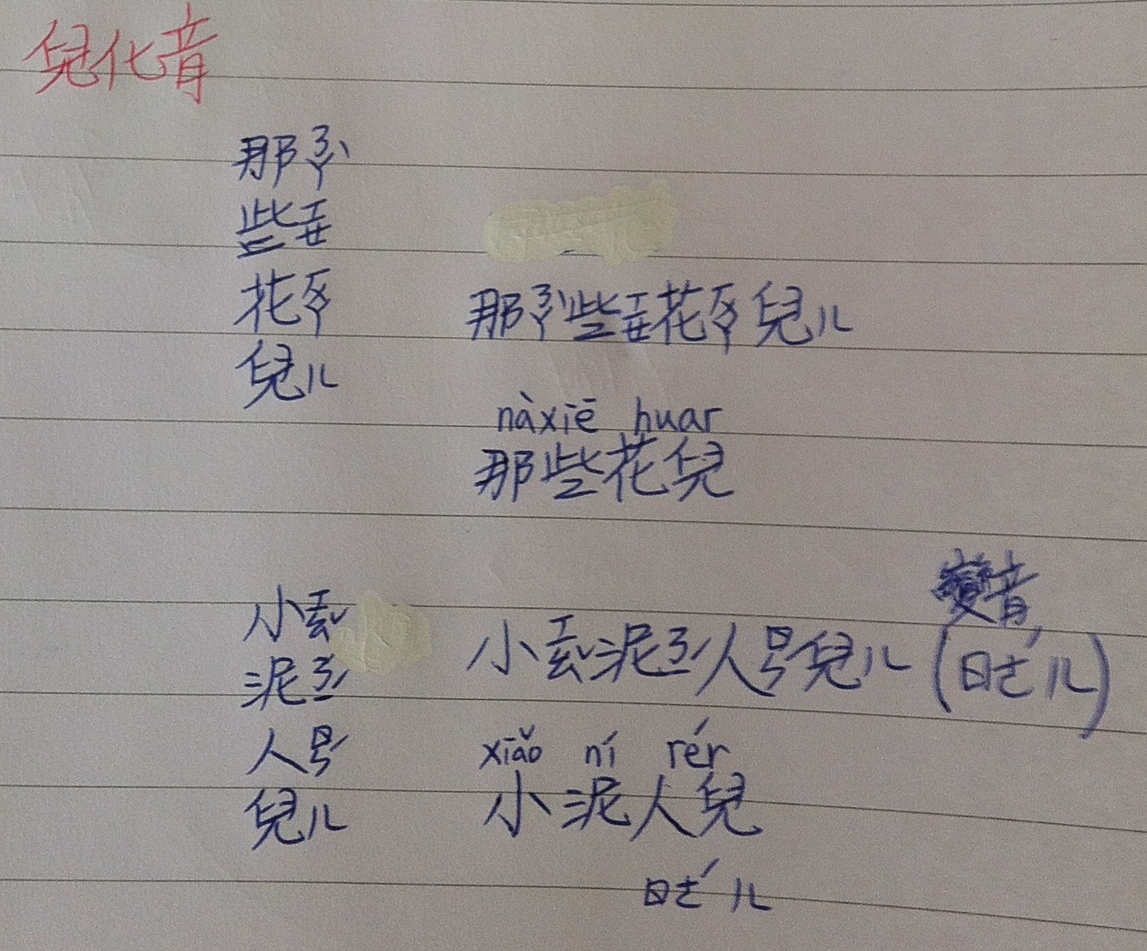 兒化音
那ㄋㄚˋ
些ㄒㄧㄝ
花ㄏㄨㄚ
兒ㄦ
那ㄋㄚˋ些ㄒㄧㄝ花ㄏㄨㄚ兒ㄦ
nàxiē huar
那些花兒
小ㄒㄧㄠˇ
泥ㄋㄧˊ
人ㄖㄣˊ
兒ㄦ
變音
小ㄒㄧㄠˇ泥ㄋㄧˊ人ㄖㄣˊ兒ㄦ(ㄖㄜˊㄦ)
xiǎo ní rér
小泥人兒
ㄖㄜˊㄦ